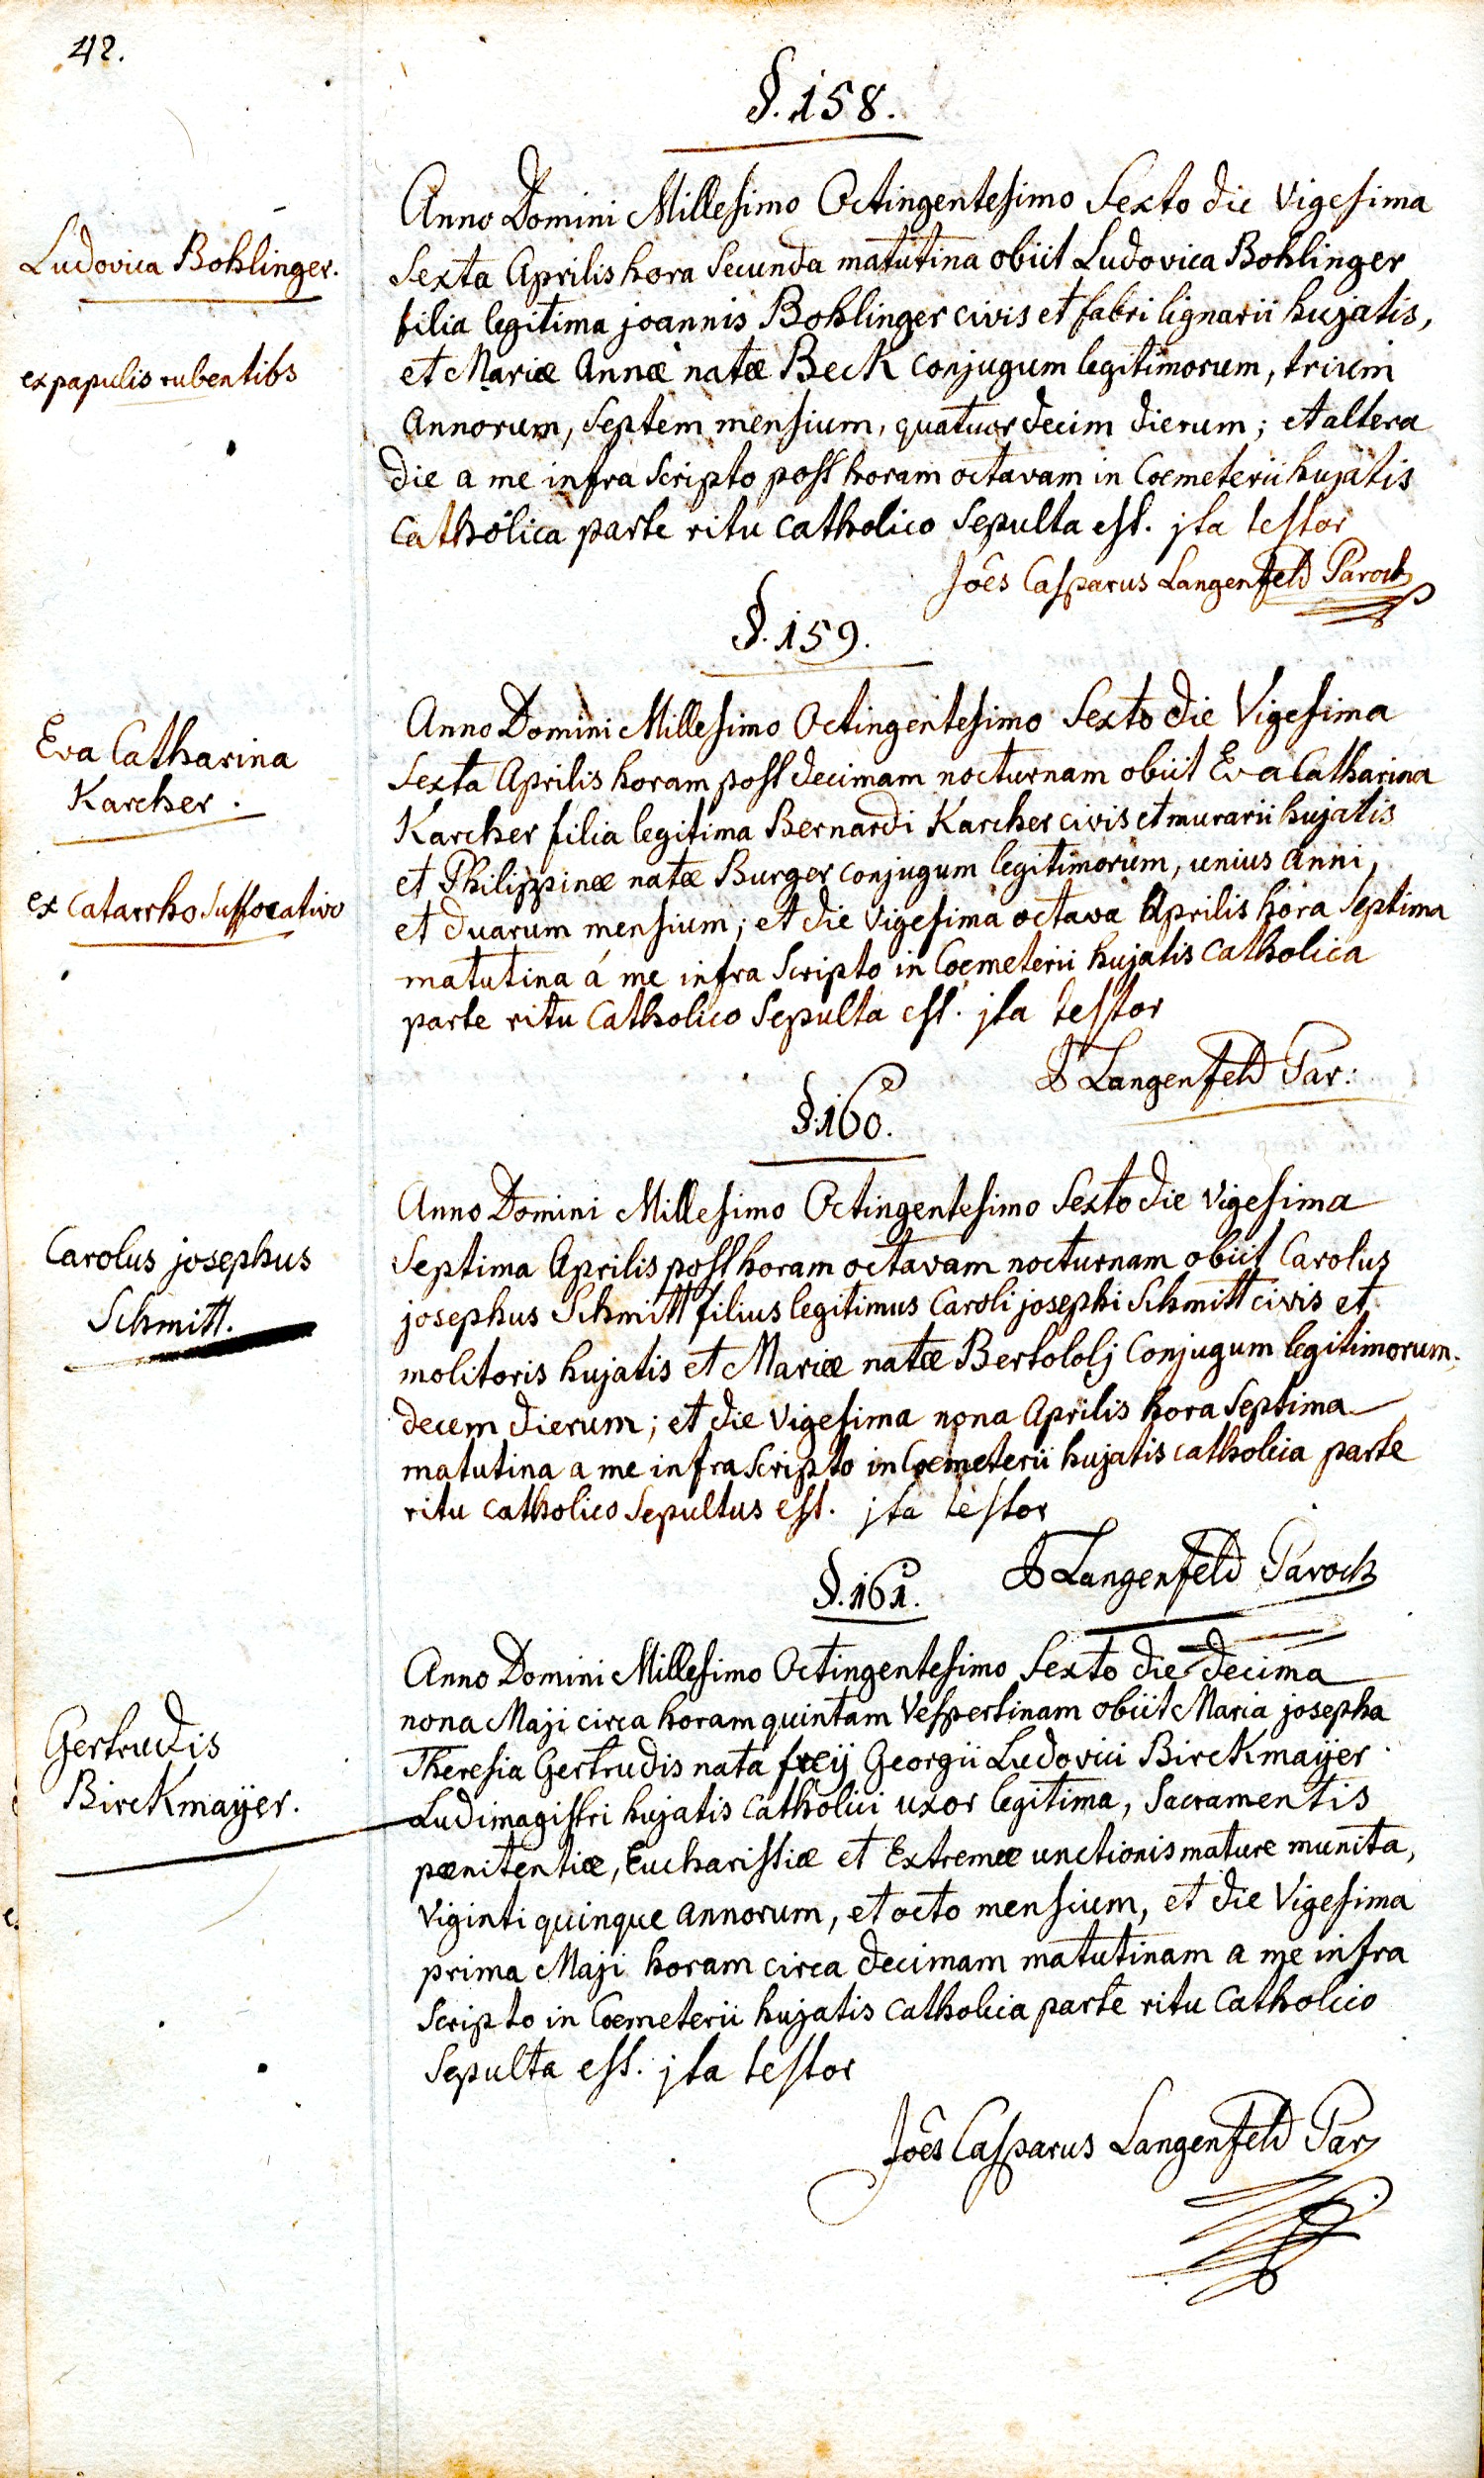 42.
§. 158.
Ludovica Bohlinger.
ex papulis rubentibs
Anno Domini Millesimo Octingentesimo Sexto die Vigesima
Sexta Aprilis hora Secunda matutina obiit Ludovica Bohlinger
filia legitima joannis Bohlinger civis et fabri lignarii hujatis,
et Mariæ Annæ natæ Beck conjugum legitimorum, trium
Annorum, Septem mensium, quatuor decim dierum; et altera
die a me infra Scripto post horam octavam in Coemeterii hujatis
Catholica parte ritu catholico Sepulta est. jta testor
Joês Casparus Langenfeld Paroch
§. 159.
Eva Catharina
Karcher.
ex Catarrho Suffocativo
Anno Domini Millesimo Octingentesimo Sexto die Vigesima
Sexta Aprilis horam post decimam nocturnam obiit Eva Catharina
Karcher filia legitima Bernardi Karcher civis et murarii hujatis
et Philippinæ natæ Burger conjugum legitimorum, unius anni,
et duarum mensium; et die vigesima octava Aprilis hora Septima
matutina á me infra Scripto in Coemeterii hujatis catholica
parte ritu Catholico Sepulta est. jta testor
Langenfeld Par:
§. 160.
Carolus josephus
Schmitt.
Anno Domini Millesimo Octingentesimo Sexto die vigesima
Septima Aprilis post horam octavam nocturnam obiit Carolus
josephus Schmitt filius legitimus Caroli josephi Schmitt civis et
molitoris hujatis et Mariæ natæ Bertololj Conjugum legitimorum.
decem dierum; et die vigesima nona Aprilis hora Septima
matutina a me infra Scripto in Coemeterii hujatis catholica parte
ritu catholico Sepultus est. jta testor
Langenfeld Paroch
§. 161.
Gertrudis
Birckmayer.
Anno Domini Millesimo Octingentesimo Sexto die decima
nona Maji circa horam quintam Vespertinam obiit Maria josepha
Theresia Gertrudis nata freij Georgii Ludovici Birckmaÿer
Ludimagistri hujatis Catholici uxor legitima, Sacramentis
pænitentiæ, Eucharistiæ et Extremæ unctionis mature munita,
viginti quinque annorum, et octo mensium, et die Vigesima
prima Maji horam circa decimam matutinam a me infra
Scripto in Coemeterii hujatis catholica parte ritu Catholico
Sepulta est. jta testor
Joês Casparus Langenfeld Par